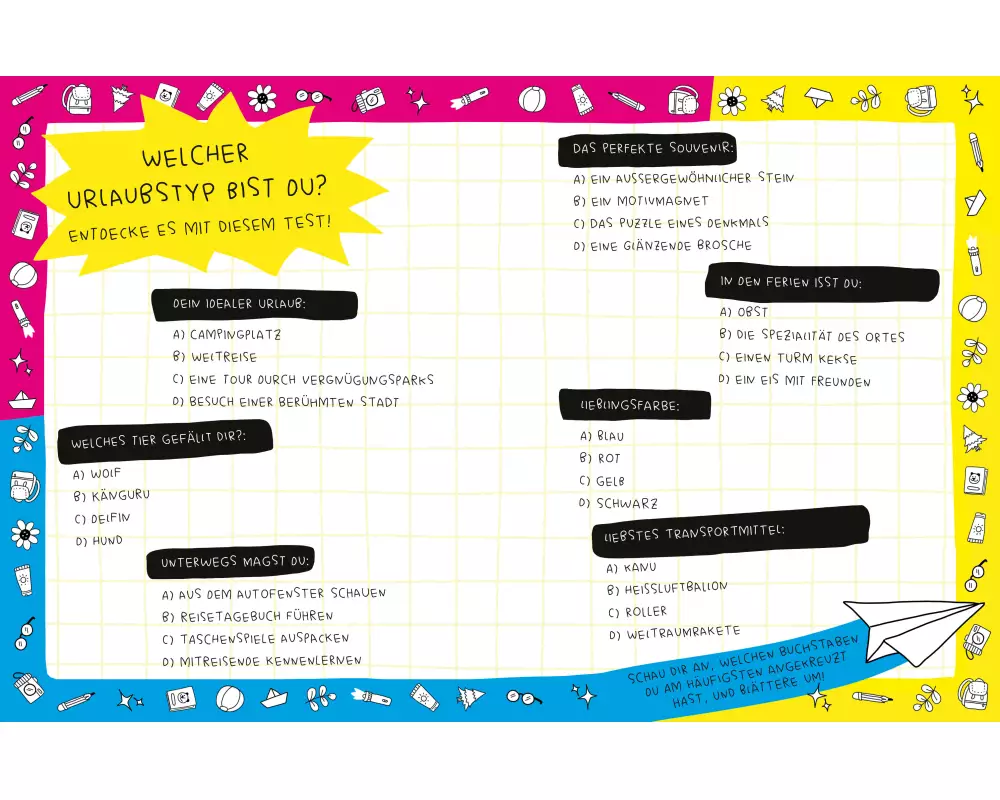 WELCHER
URLAUBSTYP BIST DU?
ENTDECKE ES MIT DIESEM TEST!
DEIN IDEALER URLAUB:
A) CAMPINGPLATZ
B) WELTREISE
C) EINE TOUR DURCH VERGNÜGUNGSPARKS
D) BESUCH EINER BERÜHMTEN STADT
WELCHES TIER GEFÄLLT DIR?:
A) WOLF
B) KÄNGURU
C) DELFIN
D) HUND
UNTERWEGS MAGST DU:
A) AUS DEM AUTOFENSTER SCHAUEN
B) REISETAGEBUCH FÜHREN
C) TASCHENSPIELE AUSPACKEN
D) MITREISENDE KENNENLERNEN
DAS PERFEKTE SOUVENIR:
A) EIN AUSSERGEWÖHNLICHER STEIN
B) EIN MOTIVMAGNET
C) DAS PUZZLE EINES DENKMALS
D) EINE GLÄNZENDE BROSCHE
IN DEN FERIEN ISST DU:
A) OBST
B) DIE SPEZIALITÄT DES ORTES
C) EINEN TURM KEKSE
D) EIN EIS MIT FREUNDEN
LIEBLINGSFARBE:
A) BLAU
B) ROT
C) GELB
D) SCHWARZ
LIEBSTES TRANSPORTMITTEL:
A) KANU
B) HEISSLUFTBALLON
C) ROLLER
D) WELTRAUMRAKETE
SCHAU DIR AN, WELCHEN BUCHSTABEN
DU AM HÄUFIGSTEN ANGEKREUZT
HAST, UND BLÄTTERE UM!